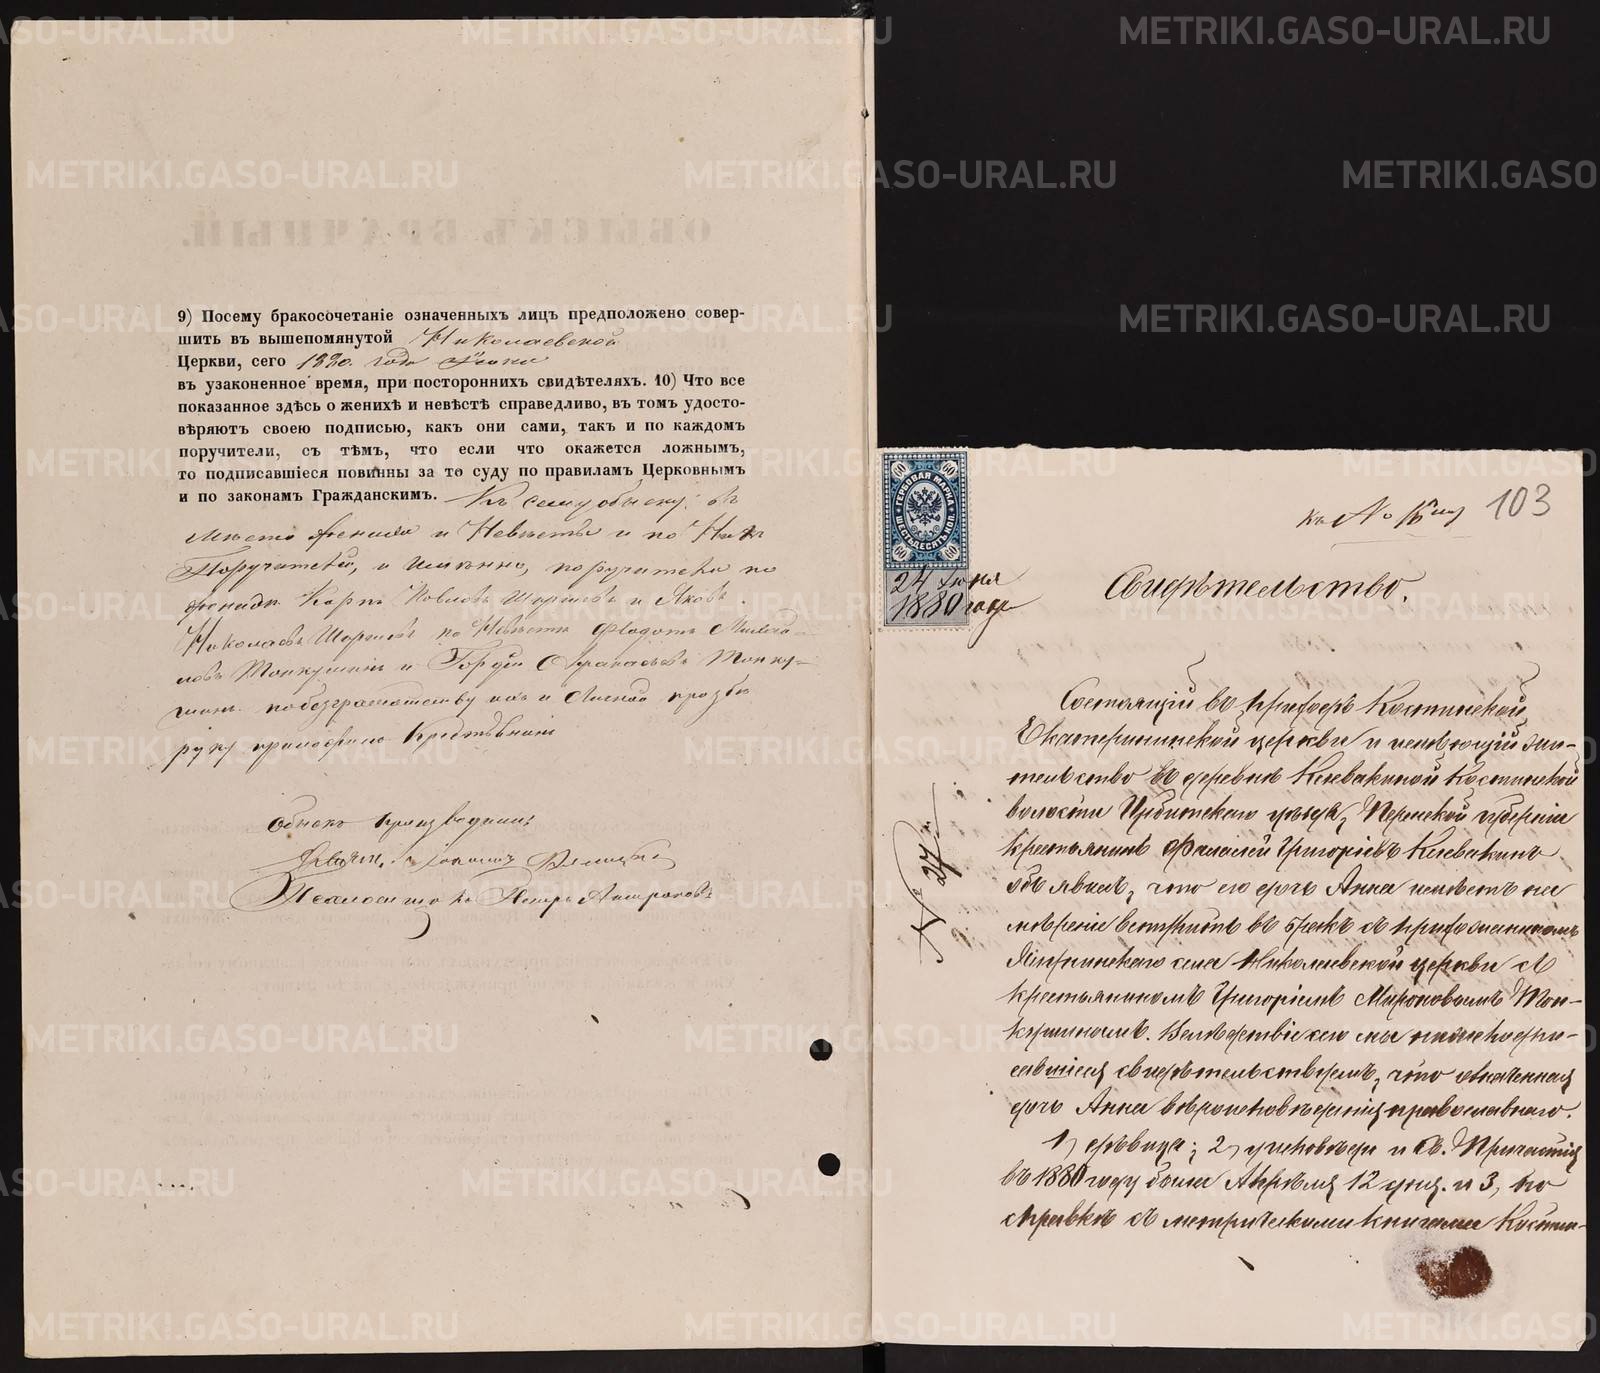 9) Посему бракосочетаніе означенныхъ лицъ предположено совер-
шить въ вышепомянутой Николаевской
Церкви, сего 1880. года Іюня
въ узаконенное время, при постороннихъ свидѣтеляхъ. 10) Что все
показанное здѣсь о женихѣ и невѣстѣ справедливо, въ томъ удосто-
вѣряютъ своею подписью, какъ они сами, такъ и по каждомъ
поручители, съ тѣмъ, что если что окажется ложнымъ,
то подписавшіеся повинны за то суду по правиламъ Церковнымъ
и по законамъ Гражданскимъ. Къ сему обыску въ
мѣсто жениха и Невѣсты и по Нихъ
Поручителей, а именно, поручители по
женихѣ Карпъ и Яковъ
Николаевъ по Невѣстѣ Федотъ
и Тонку-
шинъ по безграматству ихъ и личной прозбѣ
руку приложилъ Крестьянинъ
Обыскъ производили:
Псаломщикъ Петръ
60 60
ГЕРБОВАЯ МАРКА
ШЕСТЬДЕСЯТЪ КОП.
60 60
24 Іюня
1880 года
къ № 103
Свидѣтельство.
№ 27
Состоящій въ приходѣ Костинской
Екатерининской церкви и имѣющій жи-
тельство въ деревнѣ Клевакиной Костинской
волости Ирбитскаго уѣзда, Пермской губерніи
крестьянинъ Григорьевъ Клевакинъ
объявилъ, что его дочь Анна имѣетъ на
мѣреніе вступить въ бракъ съ прихожаниномъ
села Николаевской церкви съ
крестьяниномъ Григоріемъ Мироновымъ Тон-
кушинымъ. Вслѣдствіе сего мы нижеподпи-
савшіеся свидѣтельствуемъ, что означенная
дочь Анна вѣроисповѣданія православнаго.
1) дѣвица; 2) у исповѣди и Св. Причастія
въ 1880 году была Апрѣля 12 дня. и 3, по
справкѣ съ метрическими книгами Костин-